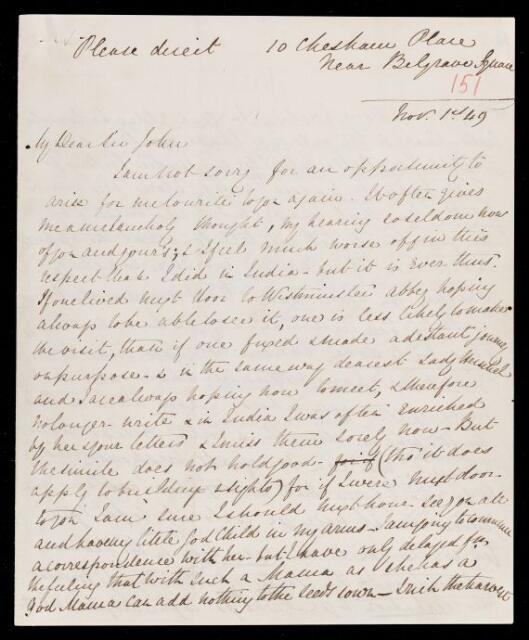 Please direct 10 Chesham Place
Near Belgrave Square
151
Nov. 1st 49
My Dear Sir John
I am not sorry for an opportunity to
arise for me to write to you again. It often gives
me a melancholy thought, my hearing so seldom now
of you and your's, & I feel much worse off in this
respect than I did in India - but it is ever thus.
If one lived next door to Westminster abbey hoping
always to be able to see it, one is less likely to make
the visit, than if one fixed & made a distant journey
on purpose - & in the same way dearest Lady
and I are always hoping now to meet, & therefore
no longer write & in India I was often enriched
by her & your letters & I miss them sorely now - But
the simile does not hold good - for if (tho' it does
apply to building & sights) for if I were next door
to you I am sure I should must have seen you all
and have my little God Child in my arms - I am going to commence
a correspondence with her - but I have only delayed fm.
the feeling that with such a Mama as she has a
God Mama can add nothing to the seeds sown - I wish the harvest